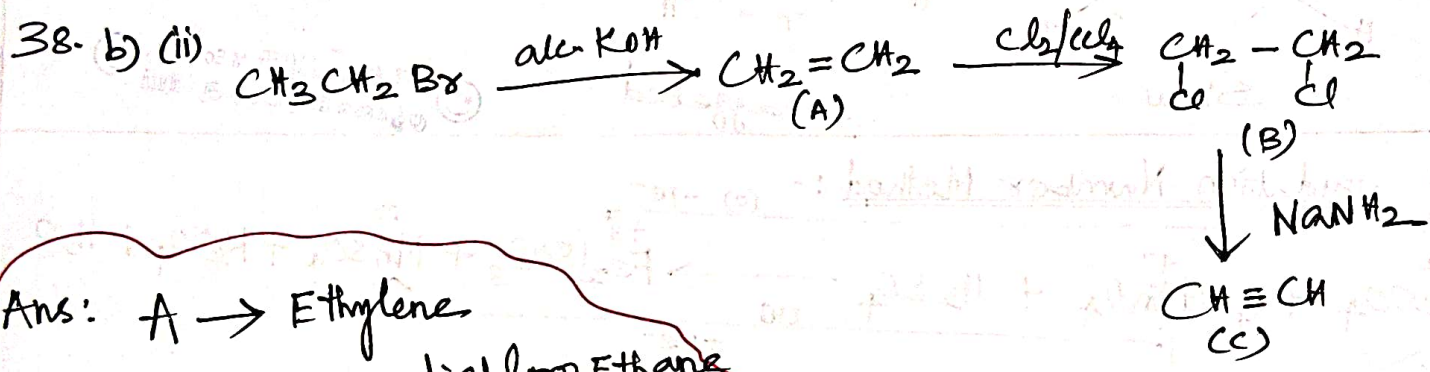 38. b) (ii)
CH3 CH2 Br alc. KOH → CH2 = CH2 Cl2/CCl4 → CH2 – CH2
Cl Cl
(A)
(B)
↓ NaNH2
CH ≡ CH
(C)
Ans: A → Ethylene
Ethane